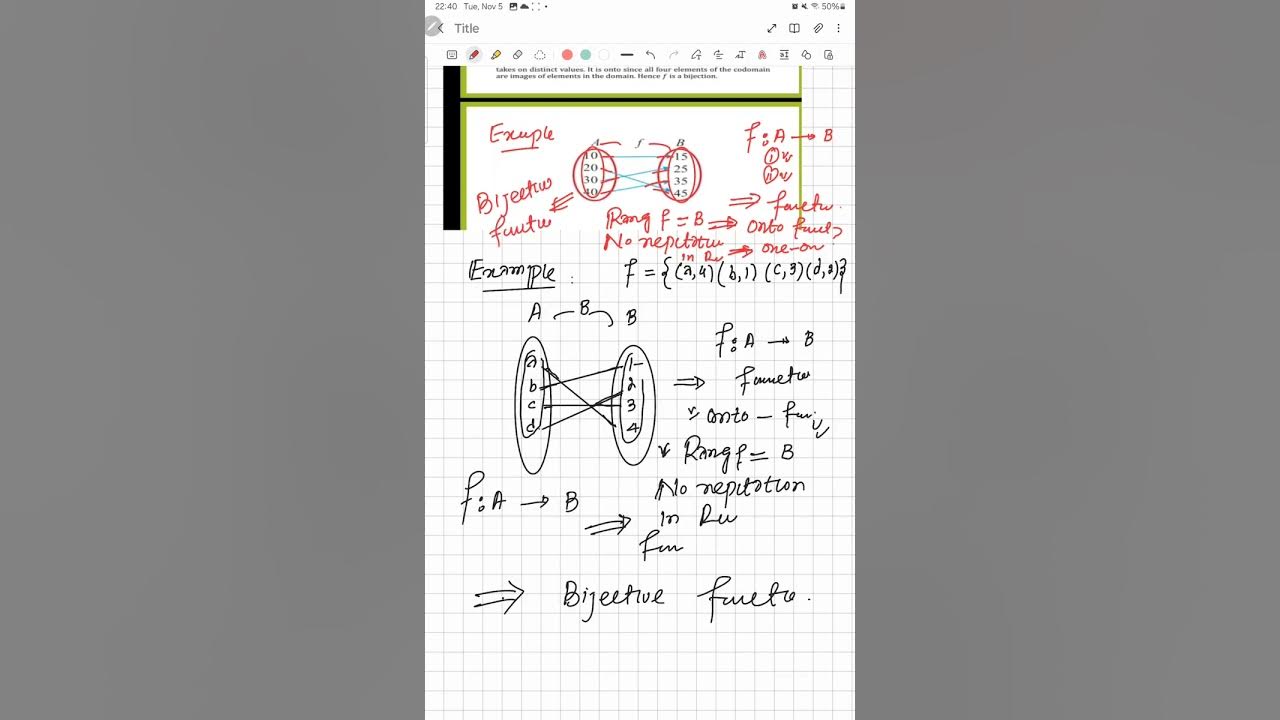 22:40 Tue, Nov 5 50%
Title
takes on distinct values. It is onto since all four elements of the codomain
are images of elements in the domain. Hence f is a bijection.
Exuple
A f B
f: A → B
10 15
20 25
30 35
40 45
①
②
⇒
Bijective
Rang f = B ⇒ onto
No repitation ⇒ one-on
in
Example : f = {(a,4) (b,1) (c,3) (d,2)}
A B B
f: A → B
a 1
b 2
c 3
d 4
⇒
onto -
Rang f = B
f: A → B
No repitation
⇒ in
Fun
⇒ Bijective